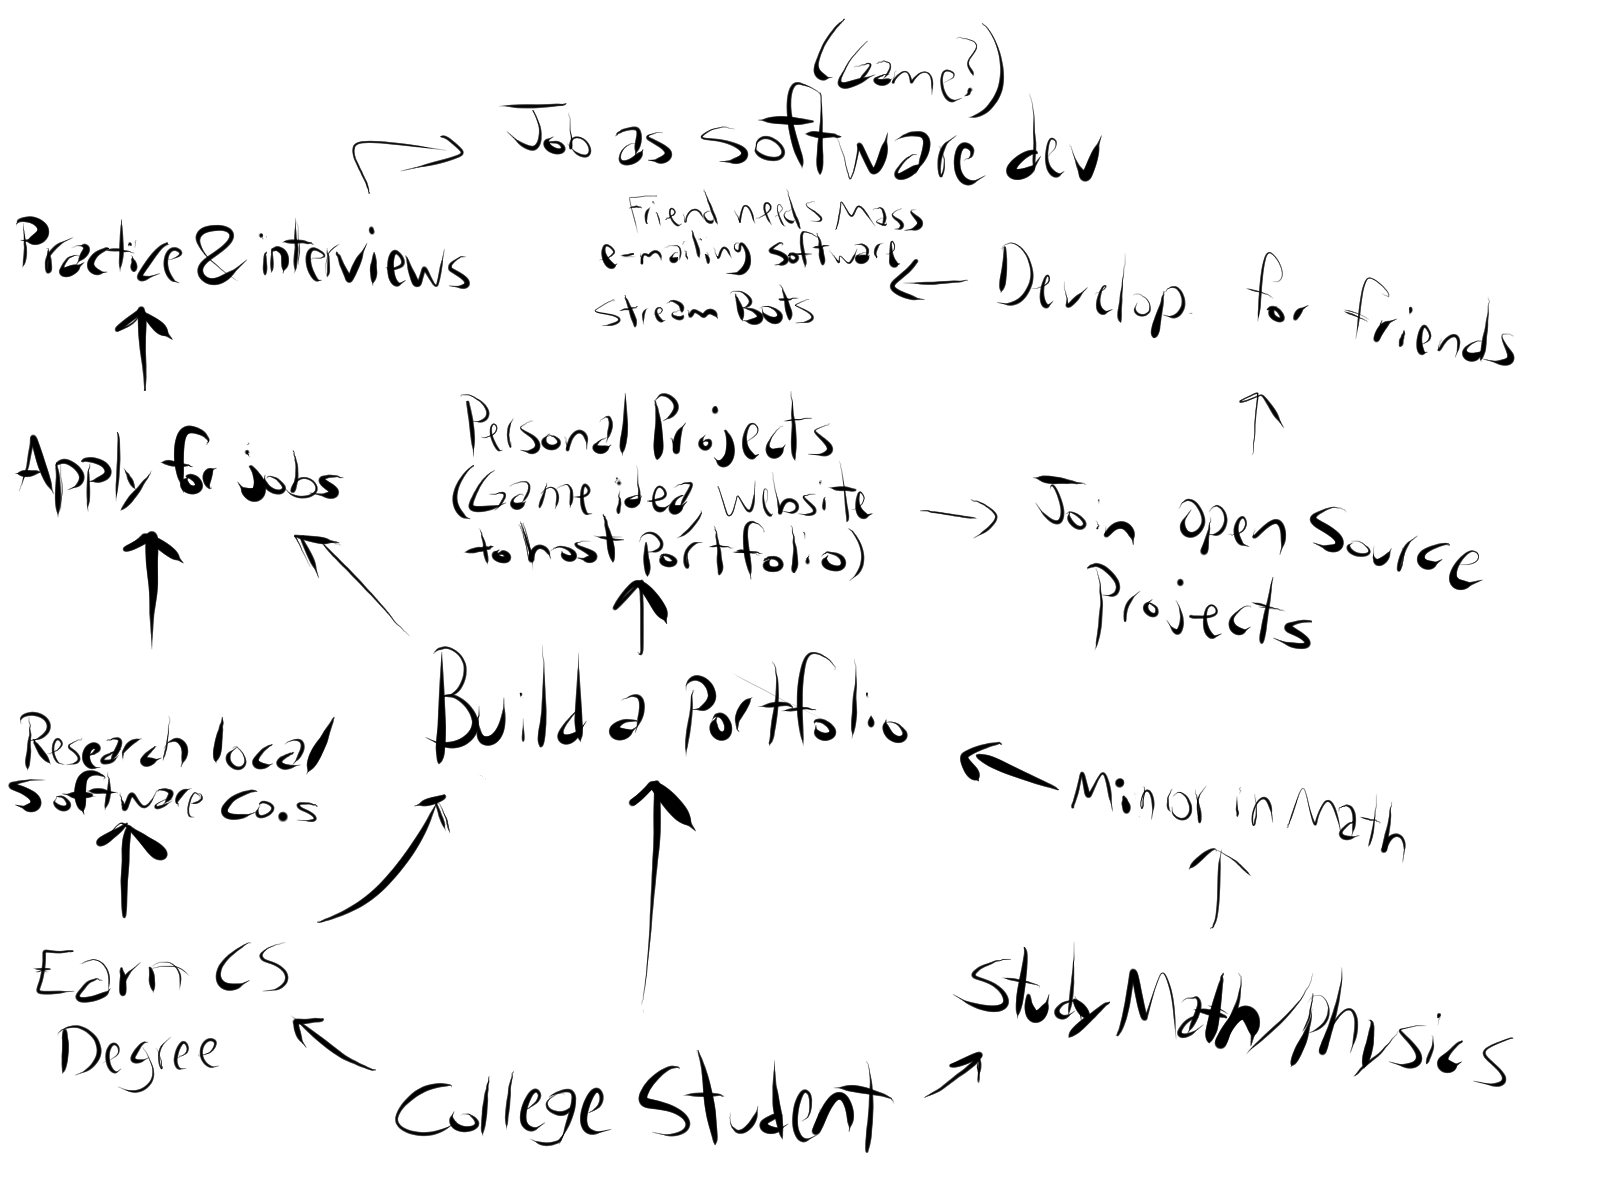 (Game?)
Job as software dev
Friend needs Mass
e-mailing software
Stream Bots
Practice & interviews
Develop for friends
Apply for jobs
Personal Projects
(Game idea, website
to host portfolio)
Join open Source
Projects
Build a portfolio
Research local
Software Co.s
Minor in Math
Earn CS
Degree
Study Math/physics
College Student